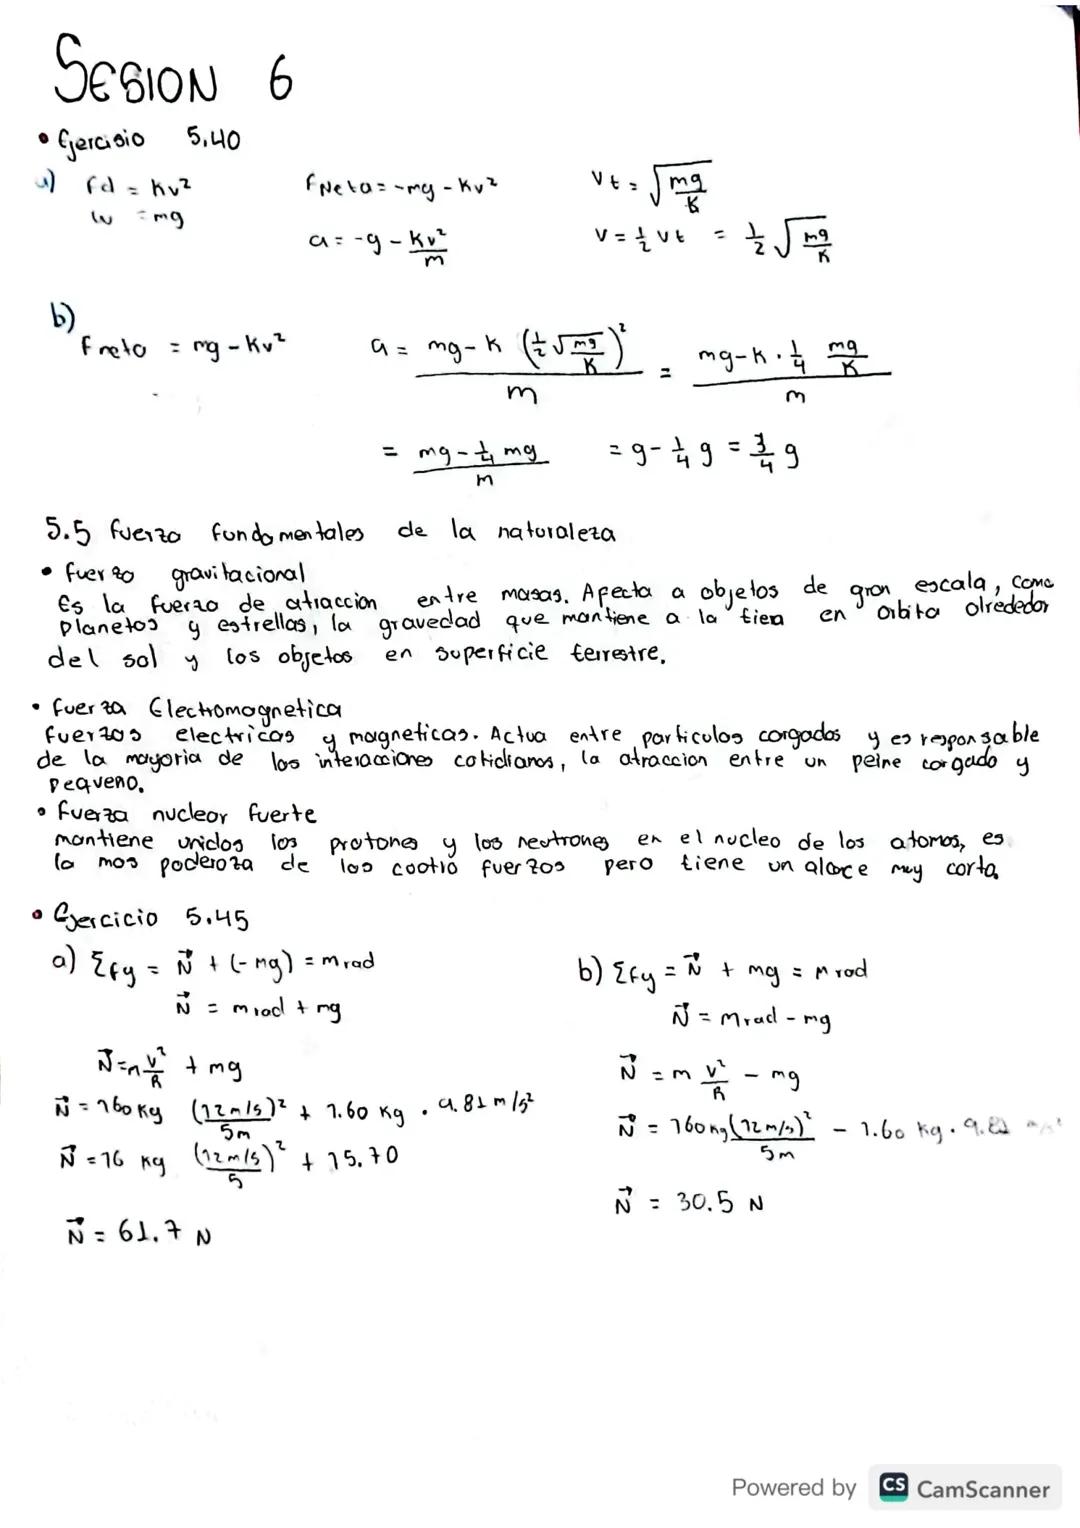 SESION 6
• Ejercisio 5.40
a) Fd = Kv² FNeta = -mg - Kv² Vt = √(mg/K)
W = mg a = -g - Kv²/m V = ½ Vt = ½ √(mg/K)
b) Freta = mg - Kv² a = (mg - K (½√(mg/K))²)/m = (mg - K · ¼ mg/K)/m
= (mg - ¼ mg)/m = g - ¼ g = ¾ g
5.5 fuerza fundamentales de la naturaleza
• fuerza gravitacional
Es la fuerza de atraccion entre masas. Afecta a objetos de gran escala, como
planetas y estrellas, la gravedad que mantiene a la tiera en orbita olrededor
del sol y los objetos en superficie terrestre.
• fuerza Electromagnetica
fuerzas electricas y magneticas. Actua entre particulas cargadas y es responsable
de la mayoria de las interacciones cotidianas, la atraccion entre un peine cargado y
pequeno.
• fuerza nuclear fuerte
mantiene unidos los protones y los neutrones en el nucleo de los atomos, es
la mas poderoza de las cootro fuerzas pero tiene un alcace muy corta
• Ejercicio 5.45
a) Σfy = N⃗ + (-mg) = mrad b) Σfy = N⃗ + mg = mrad
N⃗ = mrad + mg N⃗ = mrad - mg
N⃗ = m v²/R + mg N⃗ = m v²/R - mg
N⃗ = 160 kg (12m/s)²/5m + 1.60 kg · 9.81 m/s² N⃗ = 160 kg (12m/s)²/5m - 1.60 kg · 9.81
N⃗ = 16 kg (12m/s/5)² + 15.70
N⃗ = 30.5 N
N⃗ = 61.7 N
Powered by CS CamScanner